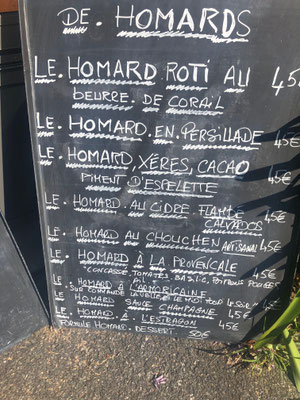 DE. HOMARDS
LE. HOMARD ROTI AU 45
BEURRE. DE CORAIL
LE. HOMARD. EN. PERSILLADE 45€
LE. HOMARD, XÉRES, CACAO 45€
PIMENT D'ESPELETTE
LE. HOMARD. AU CIDRE. FLAMBÉ
CALVADOS 45€
LE. HOMARD AU CHOUCHEN ARTISANAL 45€
LE. HOMARD À LA PROVENCALE
CONCASSÉ, TOMATES, BASILIC, POIVRONS 45€
LE. HOMARD À L'ARMORICAINE
SUR COMMANDE LA VEILLE LE MIDI POUR LE SOIR 45€
LE HOMARD SAUCE CHAMPAGNE 45€
LE. HOMARD. À. L'ESTRAGON 45€
FORMULE HOMARD. DESSERT 50€